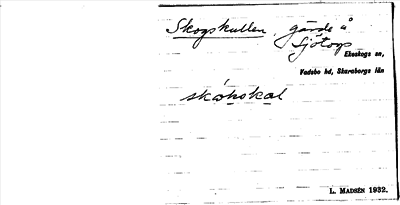 Skogskullen, gärde å
Sjötorp
Ekeskogs sn,
Vadsbo hd, Skaraborgs län
L. MADSÉN 1932.